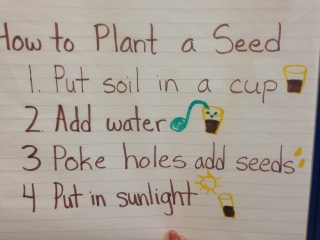 How to Plant a Seed
1. Put soil in a cup
2 Add water
3 Poke holes add seeds
4 Put in sunlight